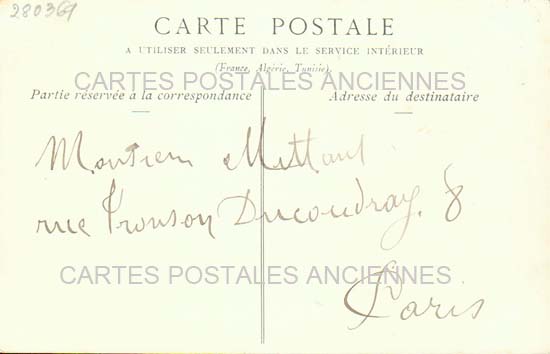 280369
CARTE POSTALE
A UTILISER SEULEMENT DANS LE SERVICE INTÉRIEUR
(France, Algérie, Tunisie).
CARTES POSTALES ANCIENNES
Partie réservée a la correspondance
Adresse du destinataire
Monsieur
rue Tronson Ducoudray. 8
CARTES POSTALES ANCIENNES
Paris